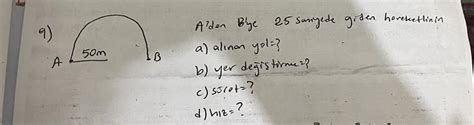 9)
A 50m B
A'dan B'ye 25 saniyede giden hareketlinin
a) alınan yol=?
b) yer değiştirme=?
c) sürat=?
d) hız=?